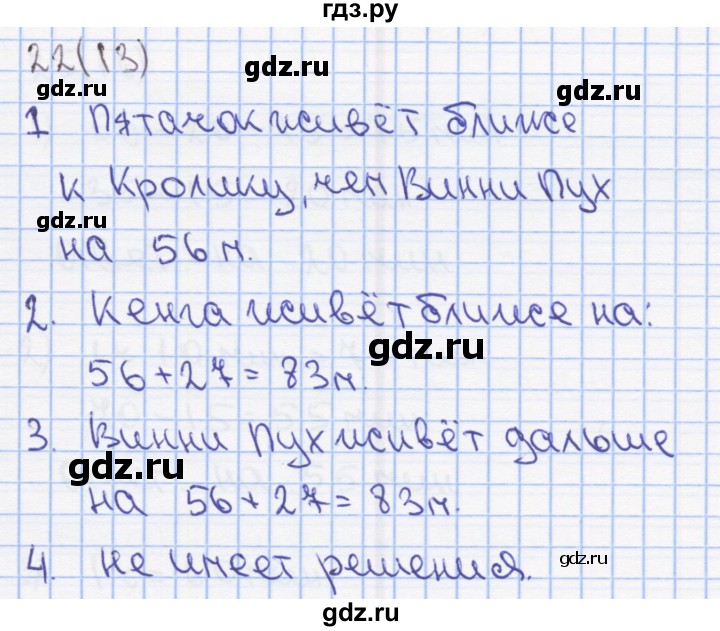 гдз.ру
22(13)
gdz.ru
gdz.ru
1 Пятачок живёт ближе
к Кролику, чем Винни Пух
gdz.ru
на 56 м.
2. Кенга живёт ближе на:
gdz.ru
56 + 27 = 83 м.
3. Винни Пух живёт дальше
gdz.ru
gdz.ru
на 56 + 27 = 83 м.
4. не имеет решения.
gdz.ru
gdz.ru